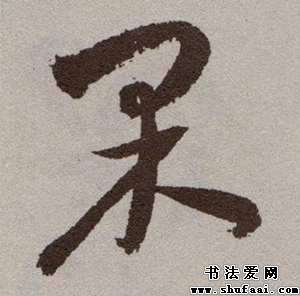 果
书法爱网
www.shufaai.com